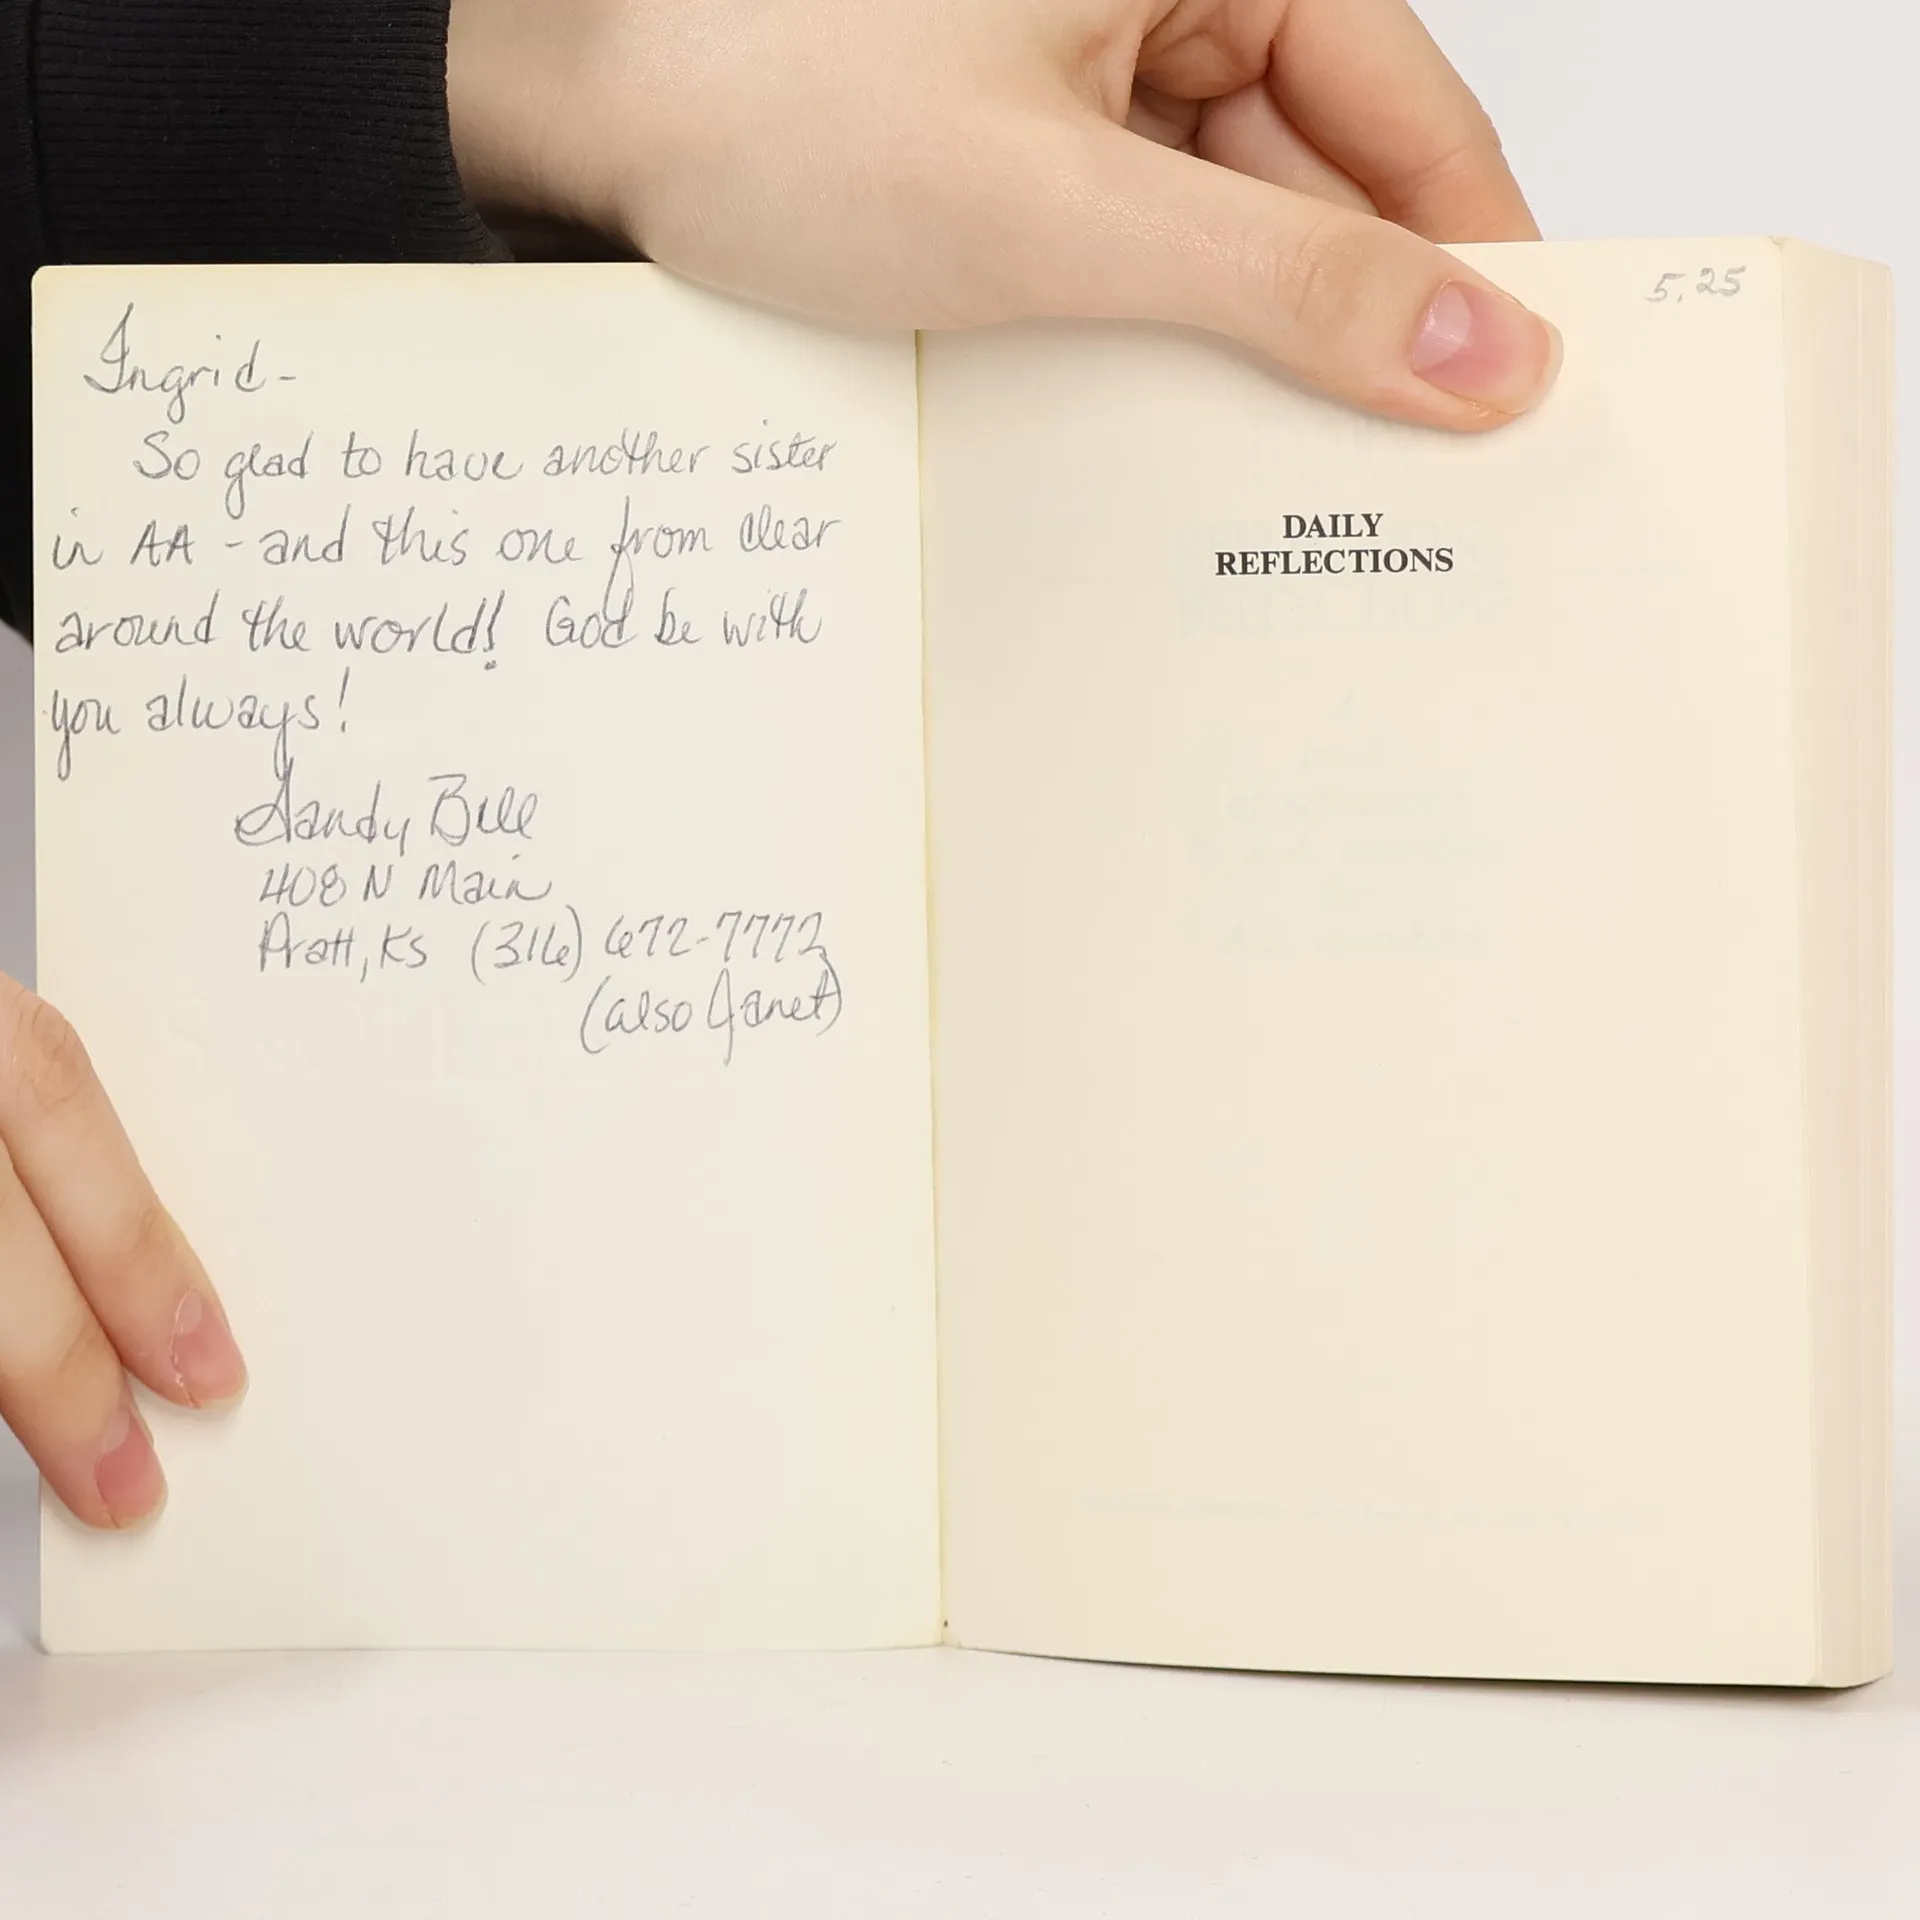 Ingrid-
So glad to have another sister
in AA - and this one from clear
around the world! God be with
you always!
Sandy Bell
408 N Main
Pratt, Ks (316) 672-7772
(also Janet)
5.25
DAILY
REFLECTIONS